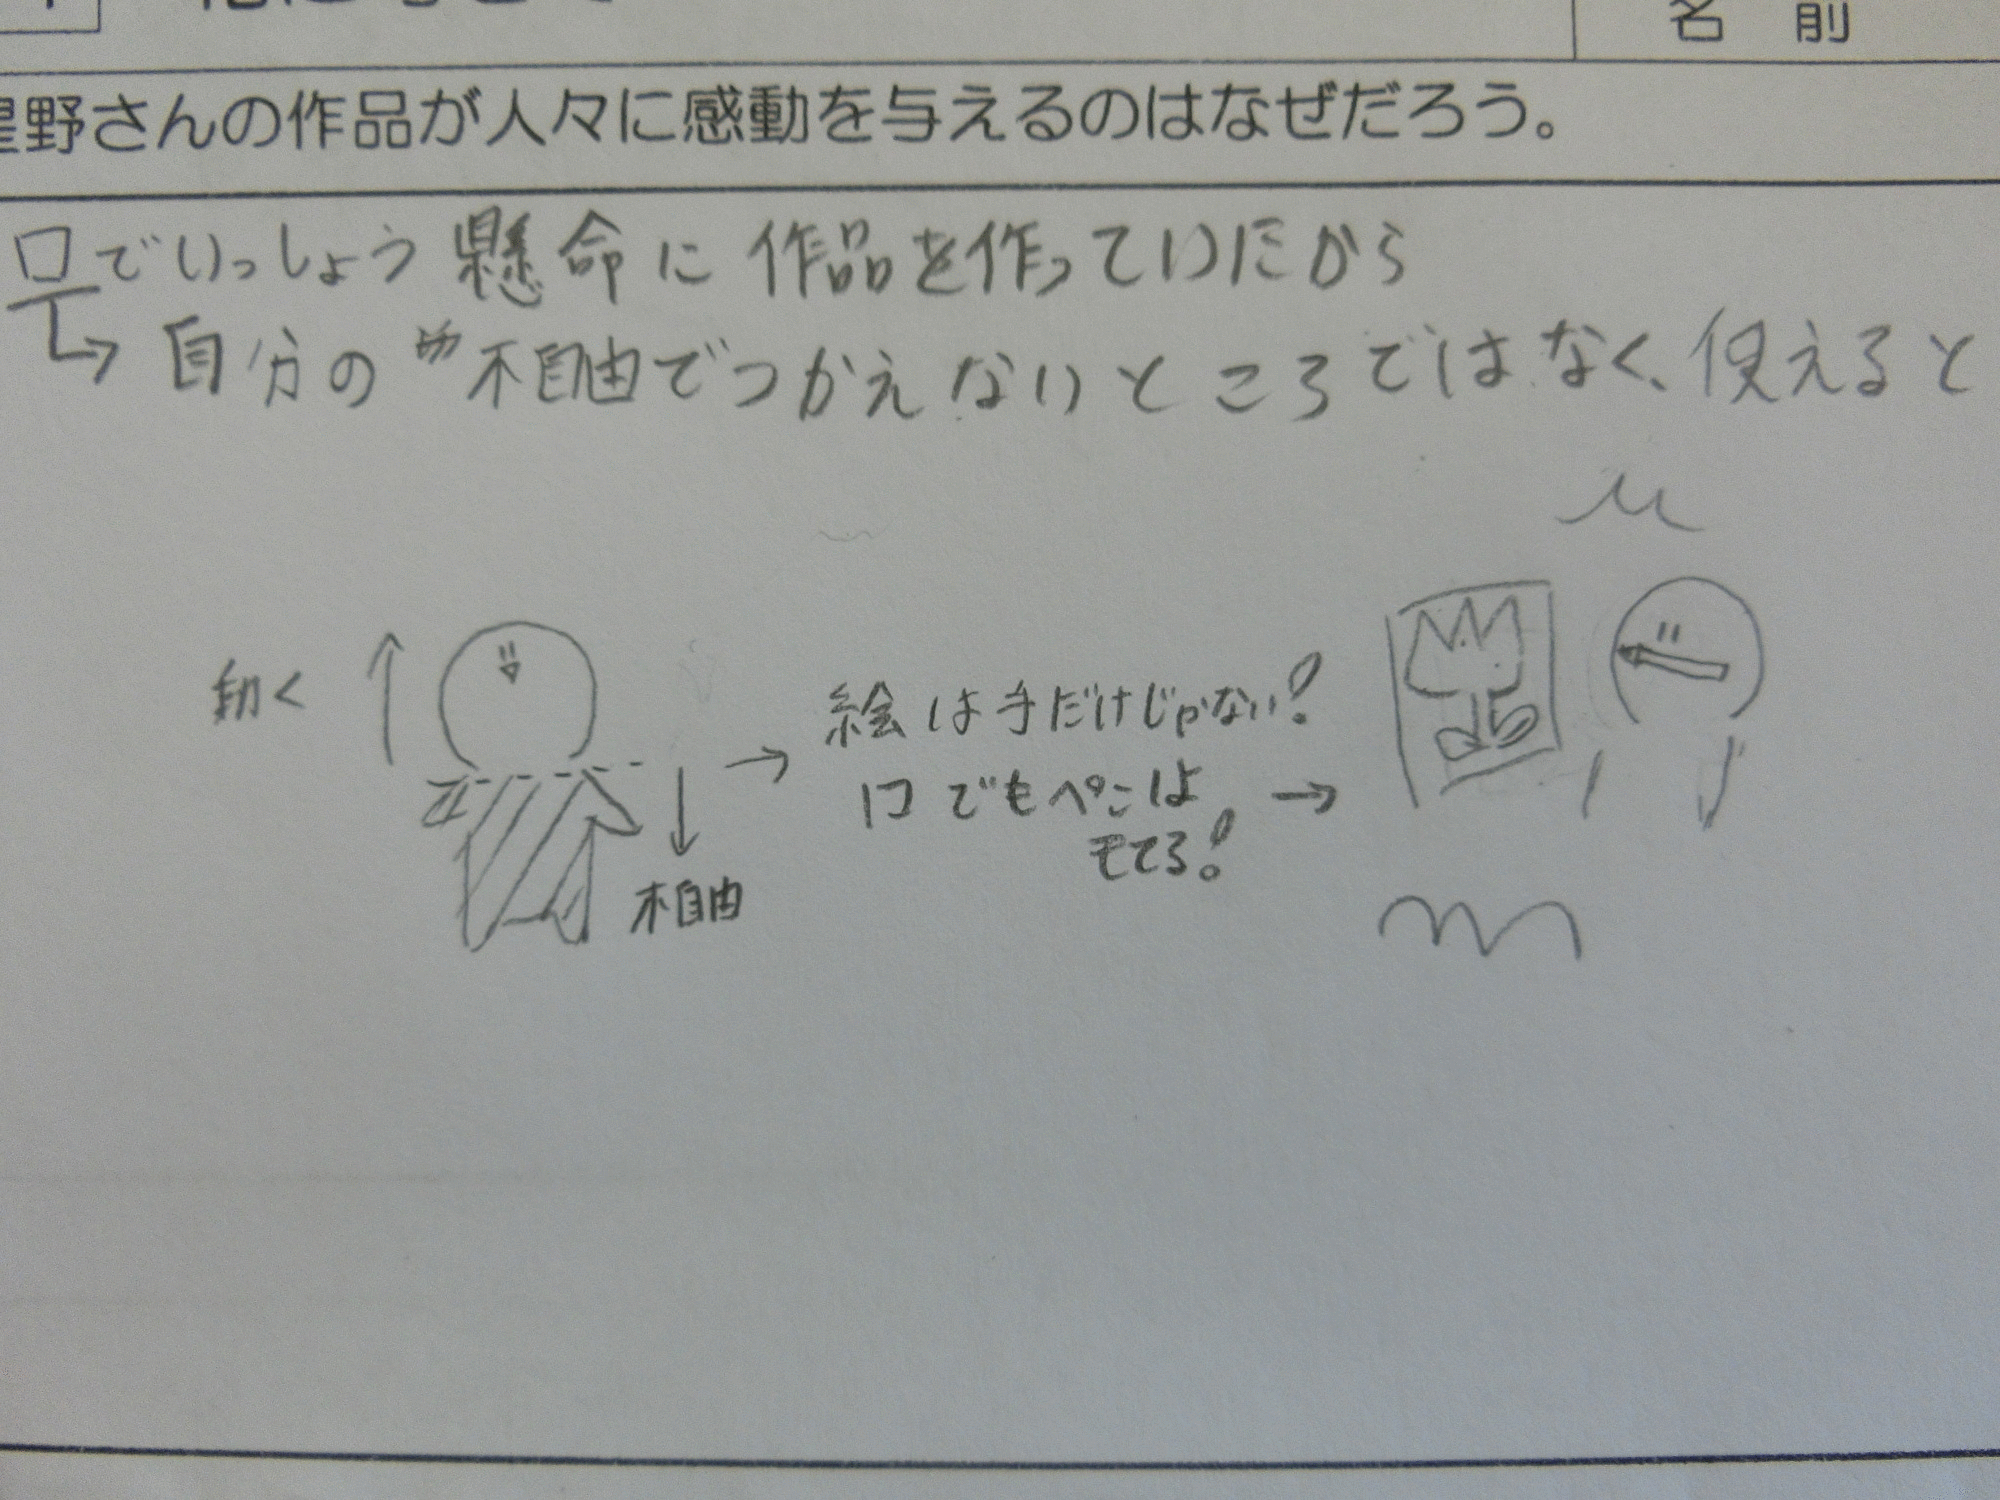 名前
星野さんの作品が人々に感動を与えるのはなぜだろう。
口でいっしょう懸命に作品を作っていたから
自分の 不自由でつかえないところではなく、使えると
動く
絵は手だけじゃない!
口でも
不自由